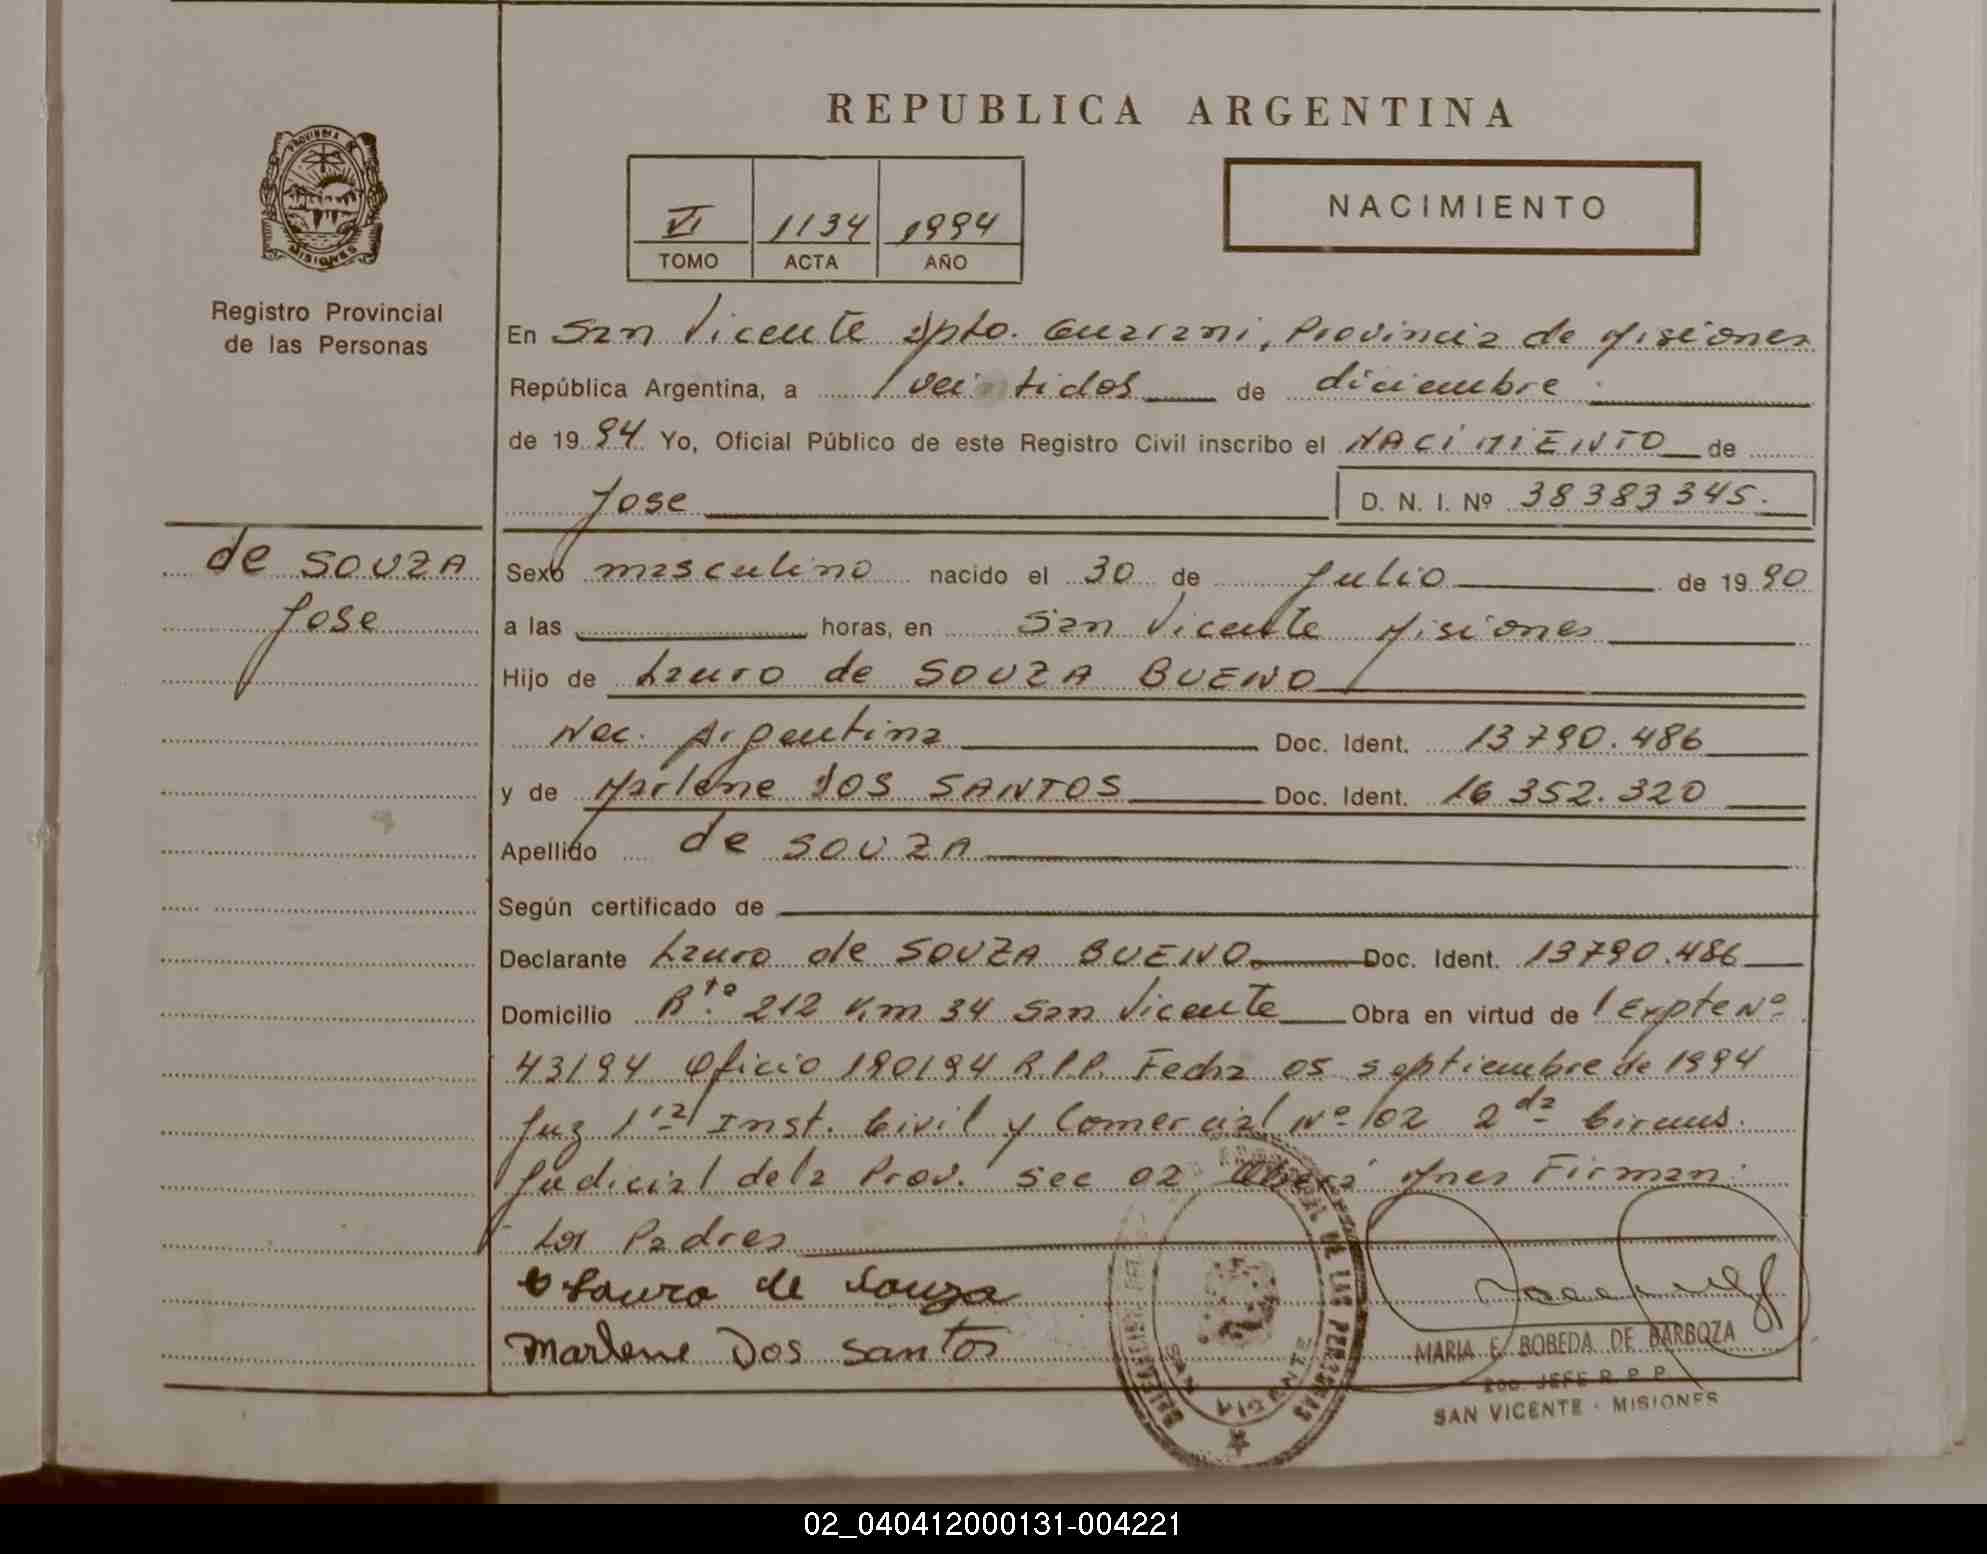 REPUBLICA ARGENTINA
PROVINCIA
MISIONES
Registro Provincial
de las Personas
VI 1134 1994
TOMO ACTA AÑO
NACIMIENTO
En San Vicente Dpto. Guarani, Provincia de Misiones
República Argentina, a veintidos de diciembre
de 1994 Yo, Oficial Público de este Registro Civil inscribo el NACIMIENTO de
Jose D. N. I. Nº 38383345.
de SOUZA
Jose
Sexo masculino nacido el 30 de Julio de 1990
a las horas, en San Vicente Misiones
Hijo de Lauro de SOUZA BUENO
Nac. Argentina Doc. Ident. 13790.486
y de Marlene DOS SANTOS Doc. Ident. 16352.320
Apellido de SOUZA
Según certificado de
Declarante Lauro de SOUZA BUENO. Doc. Ident. 13790.486
Domicilio Rta. 212 Km 34 San Vicente Obra en virtud de Expte Nº
43/94 Oficio 190/94 R.P.P. Fecha 05 septiembre de 1994
Juz 1ra Inst. Civil y Comercial Nº 02 2da Circuns.
Judicial dela Prov. Sec 02 Oberá Mnes Firman:
Los Padres
Lauro de Souza
Marlene Dos Santos
DE LAS PERSONAS
SAN VICENTE
MARIA E. BOBEDA DE BARBOZA
2do. JEFE R. P. P.
SAN VICENTE - MISIONES
02_040412000131-004221